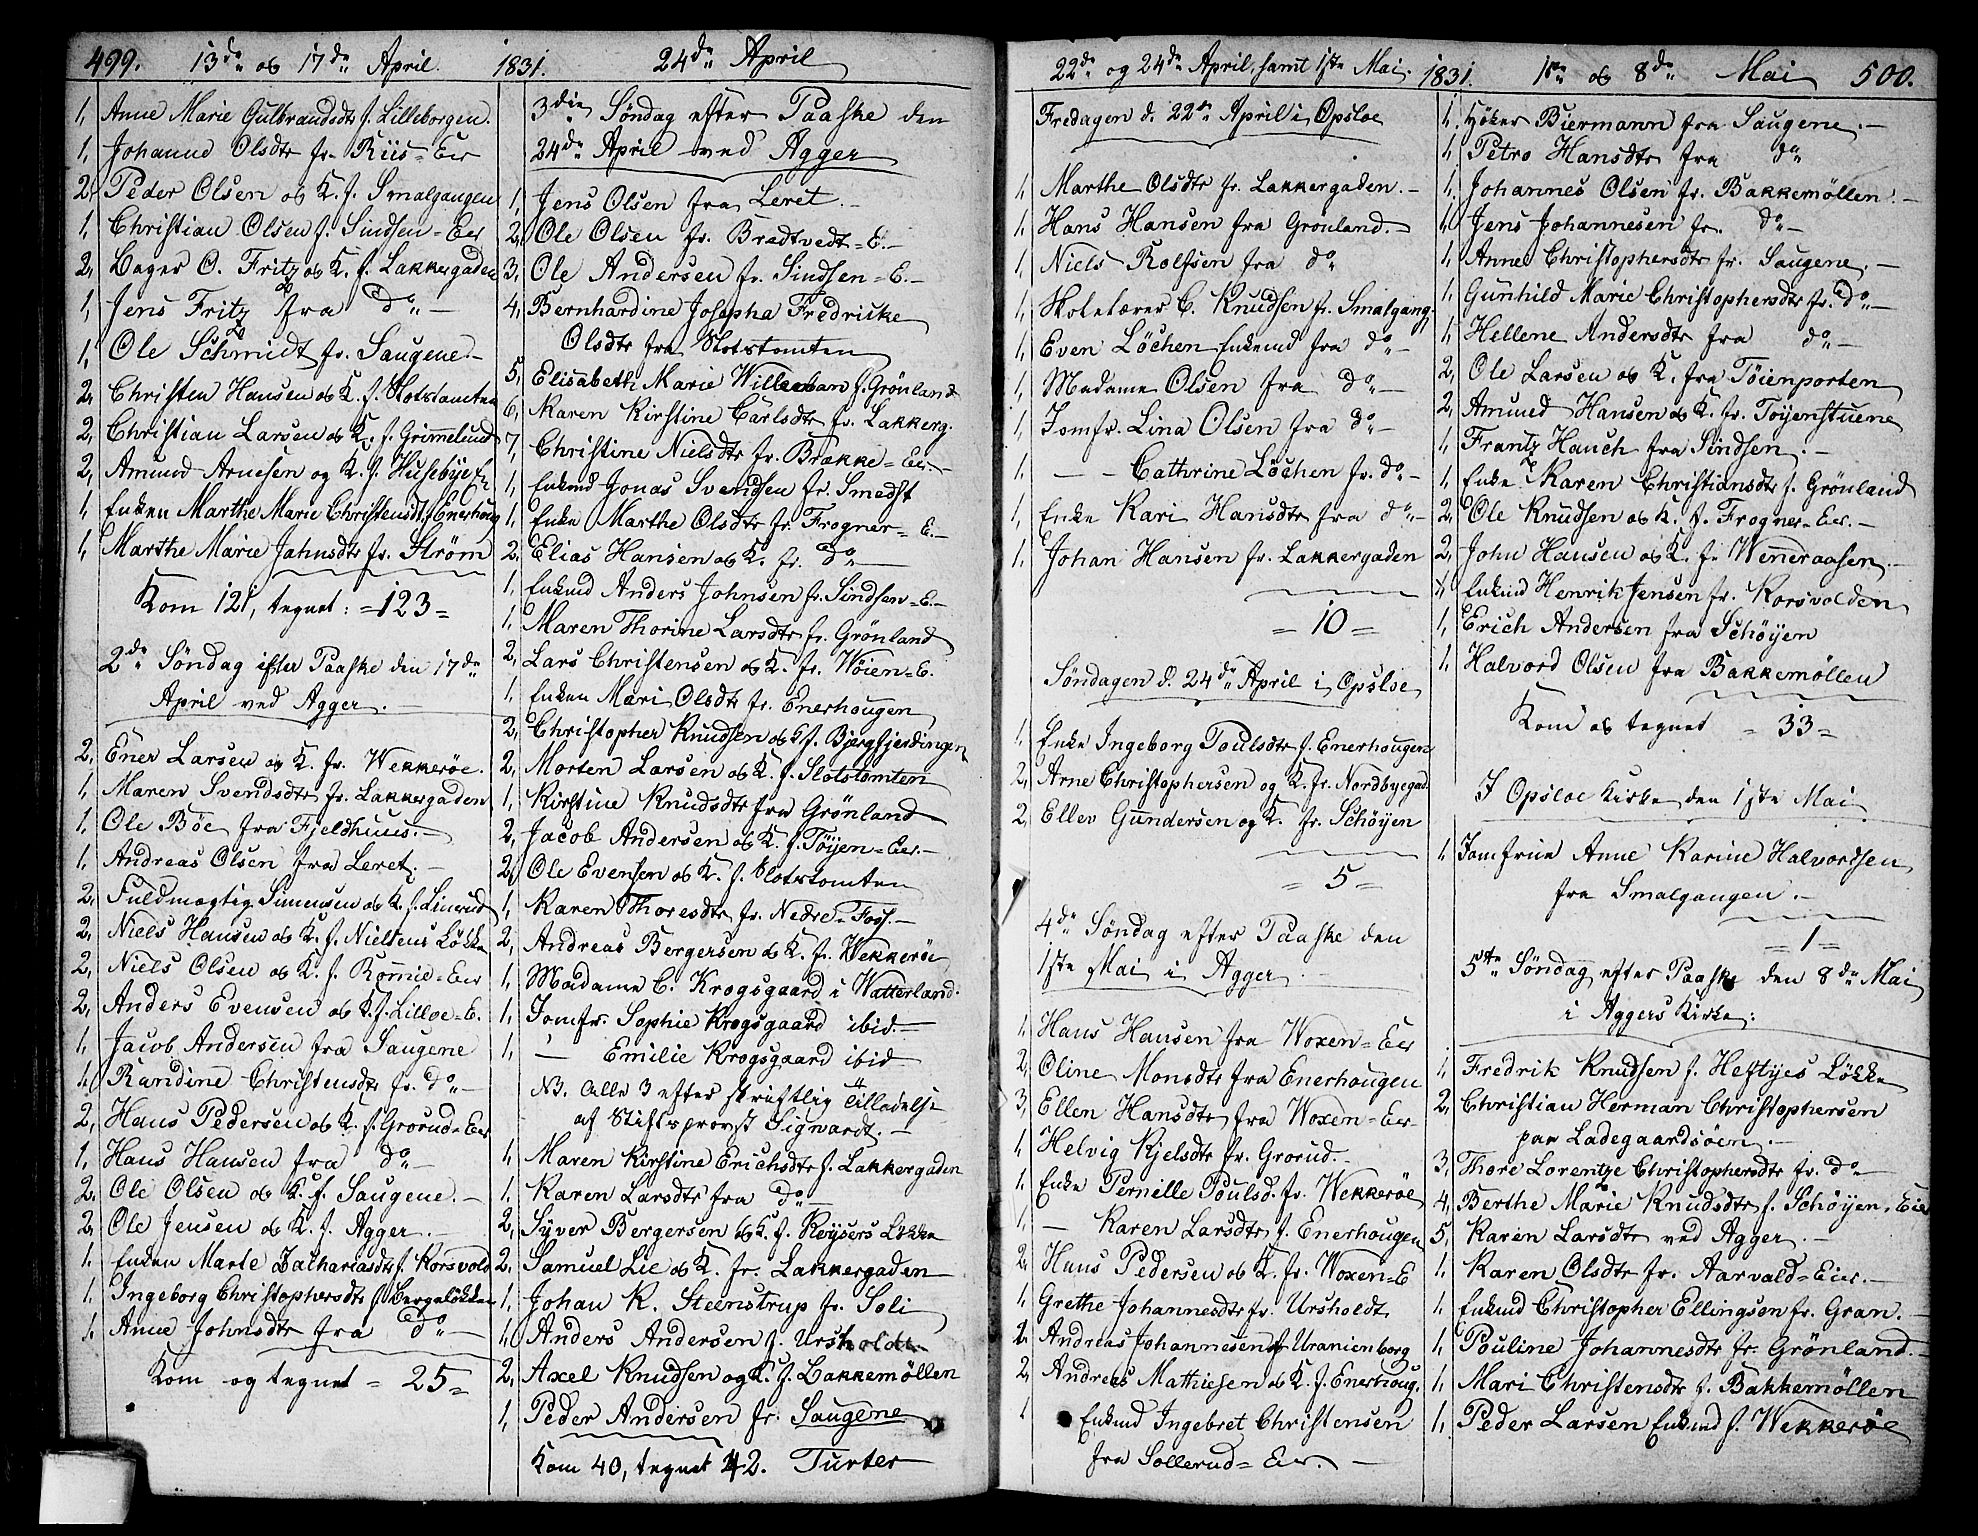 499. 13de og 17de April. 1831. 24de April
1, Anne Marie Gulbrandsdtr f. Lilleborgen.
1, Johanne Olsdtr fr. Riis=Eier
2, Peder Olsen og K. f. Smalgangen
1, Christian Olsen f. Sindsen=Eier
2, Bager O. Fritz og K. f. Lakkergaden
1, Jens Fritz fra do —
1, Ole Schmidt fr. Saugene.—
2, Christen Hansen og K. f. Slotstomten
2, Christian Larsen og K. f. Grimmelund
2, Amund Arnesen og K. f. Husebye E.
1, Enken Marthe Marie Christensdtr f. Enerhoug
1, Marthe Marie Jahnsdtr fr. Strøm
Kom 121, tegnet: =123=
2de Søndag efter Paaske den 17de
April ved Agger.
2, Ener Larsen og K. fr. Wekkerøe.
1, Maren Svendsdtr fr. Lakkergaden
1, Ole Böe fra Fjeldhuus.—
1, Andreas Olsen fra Leret.—
2, Fuldmægtig Simensen og K. f. Linrud
2, Niels Hansen og K. f. Nielsens Løkke
2, Niels Olsen og K. f. Rommie=Eier
2, Anders Evensen og K. f. Lilloe=E.
1, Jacob Andersen fra Saugene
1, Randine Christensdtr fr. do —
2, Hans Pedersen og K. f. Grorud=Eier
1, Hans Hansen fra do —
2, Ole Olsen og K. f. Saugene.—
2, Ole Jensen og K. f. Agger.—
1, Enken Marte Zachariasdtr f. Korsvold
1, Ingeborg Christophersdtr f. Bergsløkken
1, Anne Johnsdtr fra do —
Kom og tegnet = 25=
3die Søndag efter Paaske den
24de April ved Agger
1, Jens Olsen fra Leret.—
2, Ole Olsen fr. Bredtvedt=E.—
3, Ole Andersen fr. Sindsen=E.—
4, Bernhardine Josepha Fredricke
Olsdtr fra Slotstomten
5, Elisabeth Marie Willeban f. Grönland
6, Karen Kirstine Carlsdtr fr. Lakkerg.
7, Christine Nielsdtr fr. Brække=Eier
1, Enkmd Jonas Svendsen fr. Smedst
1, Enke Marthe Olsdtr fr. Frogner=E.—
2, Elias Hansen og K. fr. do —
1, Enkmd Anders Johnsen fr. Sindsen=E.—
1, Maren Thorine Larsdtr fr. Grönland
2, Lars Christensen og K. fr. Wöien=E.
1, Enken Mari Olsdtr fr. Enerhougen
2, Christopher Knudsen og K. f. Bjergfjerdingen
2, Morten Larsen og K. f. Slotstomten
1, Kirstine Knudsdtr fra Grönland
2, Jacob Andersen og K. f. Töyen=Eier.—
2, Ole Evensen og K. f. Slotstomten
1, Karen Thoresdtr fr. Nedre=Foss.—
2, Andreas Bergersen og K. f. Wekkeröe
1, Madame C. Krogsgaard i Vatterland.
1, Jomfr. Sophie Krogsgaard ibid—
1, — Emilie Krogsgaard ibid
NB. Alle 3 efter skriftlig Tilladelse
af Stiftsprovst Sigwardt.—
1, Maren Kirstine Erichsdtr f. Lakkergaden
1, Karen Larsdtr fra do —
2, Syver Bergersen og K. f. Keysers Løkke
2, Samuel Lie og K. fr. Lakkergaden
1, Johan K. Steenstrup fr. Soli
1, Anders Andersen f. Ursholdt
2, Axel Knudsen og K. f. Bakkemöllen
1, Peder Andersen fr. Saugene
Kom 40, tegnet 42. Turter
22de og 24de April, samt 1ste Mai. 1831. 1ste og 8de Mai 500.
Fredagen d. 22de April i Opsloe
1, Marthe Olsdtr fr. Lakkergaden.—
1, Hans Hansen fra Grönland.—
1, Niels Rolfsen fra do
1, Skolelærer C. Knudsen fr. Smalgang.
1, Even Löchen Enkemd fra do —
1, Madame Olsen fra do —
1, Jomfr. Lina Olsen fra do —
1, — Cathrine Löchen fr. do —
1, Enke Kari Hansdtr fra do —
1, Johan Hansen fr. Lakkergaden
= 10 =
Søndagen d. 24de April i Opsloe
1, Enke Ingeborg Poulsdtr f. Enerhougen
2, Arne Christophersen og K. fr. Nordbyegad.
2, Ellev Gundersen og K. fr. Schöyen
= 5 =
4de Søndag efter Paaske den
1ste Mai i Agger
1, Hans Hansen fra Woxen=Eier
2, Oline Monsdtr fra Enerhougen
3, Ellen Hansdtr fra Woxen=Eier
1, Helvig Kjelsdtr fr. Grorud.
1, Enke Pernille Poulsd. fr. Wekkeröe
1, — Karen Larsdtr f. Enerhougen
2, Hans Pedersen og K. fr. Woxen=E
1, Grethe Johannesdtr fr. Ursholdt
1. Andreas Johannesen fr. Uranienborg
2, Andreas Mathiesen og K. f. Enerhoug.
1 Enkmd Ingebret Christensen
fra Sollerud=Eier.—
1. Höker Biermann fra Saugene.—
1, Petro Hansdtr fra do
1, Johannes Olsen fr. Bakkemöllen.—
1, Jens Johannesen fr. do —
1, Anne Christophersdtr fr. Saugene.—
1, Gunhild Marie Christophersdtr fr. do —
1, Hellene Andersdtr fra do —
2, Ole Larsen og K. fra Töienporten
2, Amund Hansen og K. fr. Töyenstuene
1, Frantz Hauch fra Sindsen.—
1, Enke Karen Christiansdtr f. Grönland
2, Ole Knudsen og K. f. Frogner=Eier.—
2, John Hansen og K. fr. Wenderaasen.—
1, Enkmd Henrik Jensen fr. Korsvolden
1, Erich Andersen fra Schöyen
1, Halvord Olsen fra Bakkemöllen
Kom og tegnet = 33=
I Opsloe Kirke den 1ste Mai
1, Jomfrue Anne Karine Halvordsen
fra Smalgangen.—
=1=
5te Søndag efter Paaske den 8de Mai
i Aggers Kirke:
1, Fredrik Knudsen f. Heftyes Løkke
2, Christian Herman Christophersen
paa Ladegaardsöen.—
3, Thore Lorentze Christophersdtr fr. do —
4, Berthe Marie Knudsdtr f. Schöyen=Eier
5, Karen Larsdtr ved Agger.—
1, Karen Olsdtr fr. Aarvald=Eier.—
1, Enkmd Christopher Ellingsen fr. Gran.—
1, Pouline Johannesdtr fr. Grönland.—
1, Mari Christensdtr f. Bakkemöllen
1, Peder Larsen Enkmd f. Wekkeröe